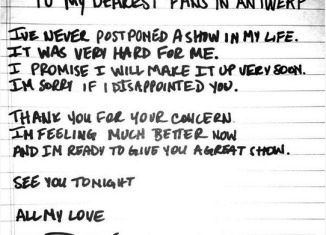 TO MY DEAREST FANS IN ANTWERP
I'VE NEVER POSTPONED A SHOW IN MY LIFE.
IT WAS VERY HARD FOR ME.
I PROMISE I WILL MAKE IT UP VERY SOON.
I'M SORRY IF I DISAPPOINTED YOU.
THANK YOU FOR YOUR CONCERN.
I'M FEELING MUCH BETTER NOW
AND I'M READY TO GIVE YOU A GREAT SHOW.
SEE YOU TONIGHT
ALL MY LOVE